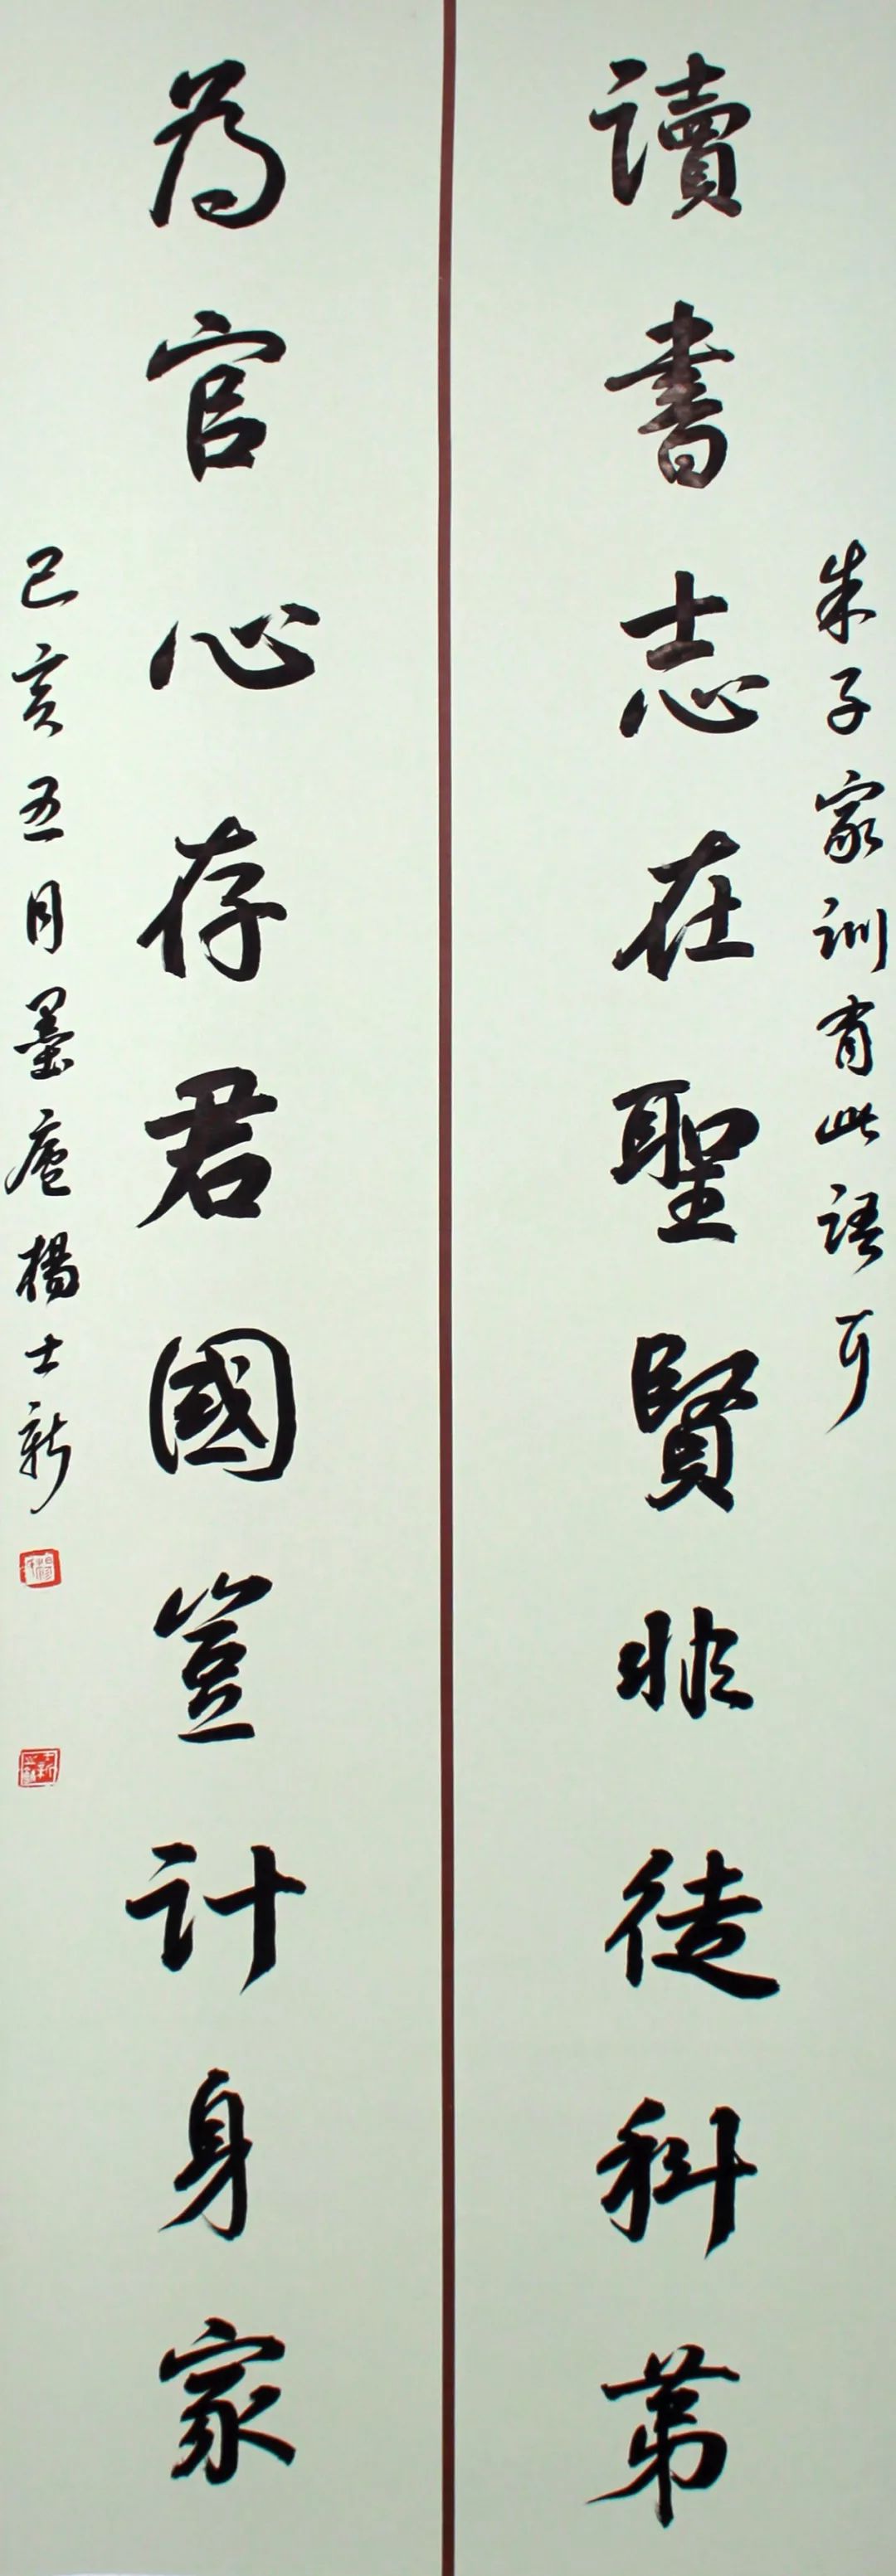 朱子家訓有此語耳
讀書志在聖賢非徒科第
為官心存君國豈計身家
己亥五月墨廬楊士新